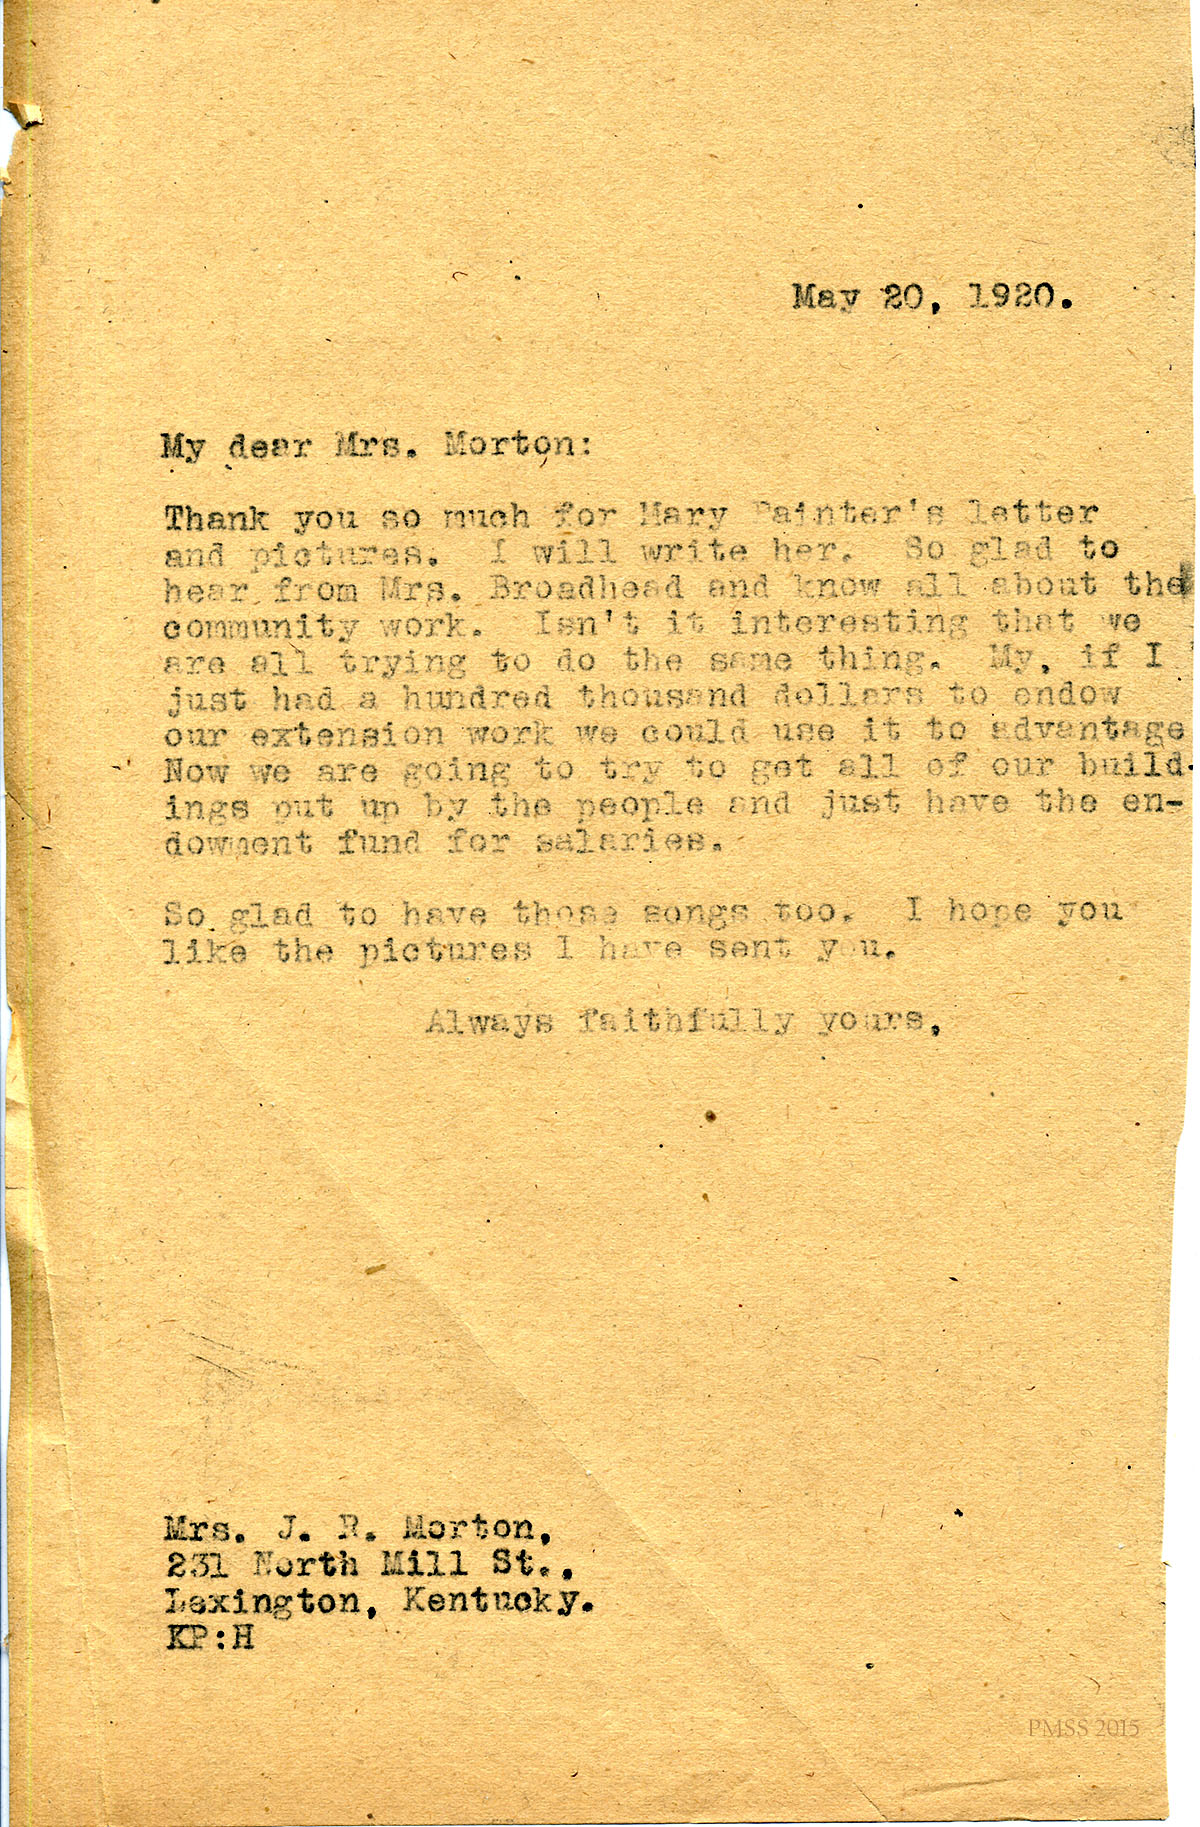 May 20, 1920.
My dear Mrs. Morton:
Thank you so much for Mary Painter's letter
and pictures. I will write her. So glad to
hear from Mrs. Broadhead and know all about the
community work. Isn't it interesting that we
are all trying to do the same thing. My, if I
just had a hundred thousand dollars to endow
our extension work we could use it to advantage
Now we are going to try to get all of our build-
ings put up by the people and just have the en-
dowment fund for salaries.
So glad to have those songs too. I hope you
like the pictures I have sent you.
Always faithfully yours,
Mrs. J. R. Morton,
231 North Mill St.,
Lexington, Kentucky.
KP:H
PMSS 2015